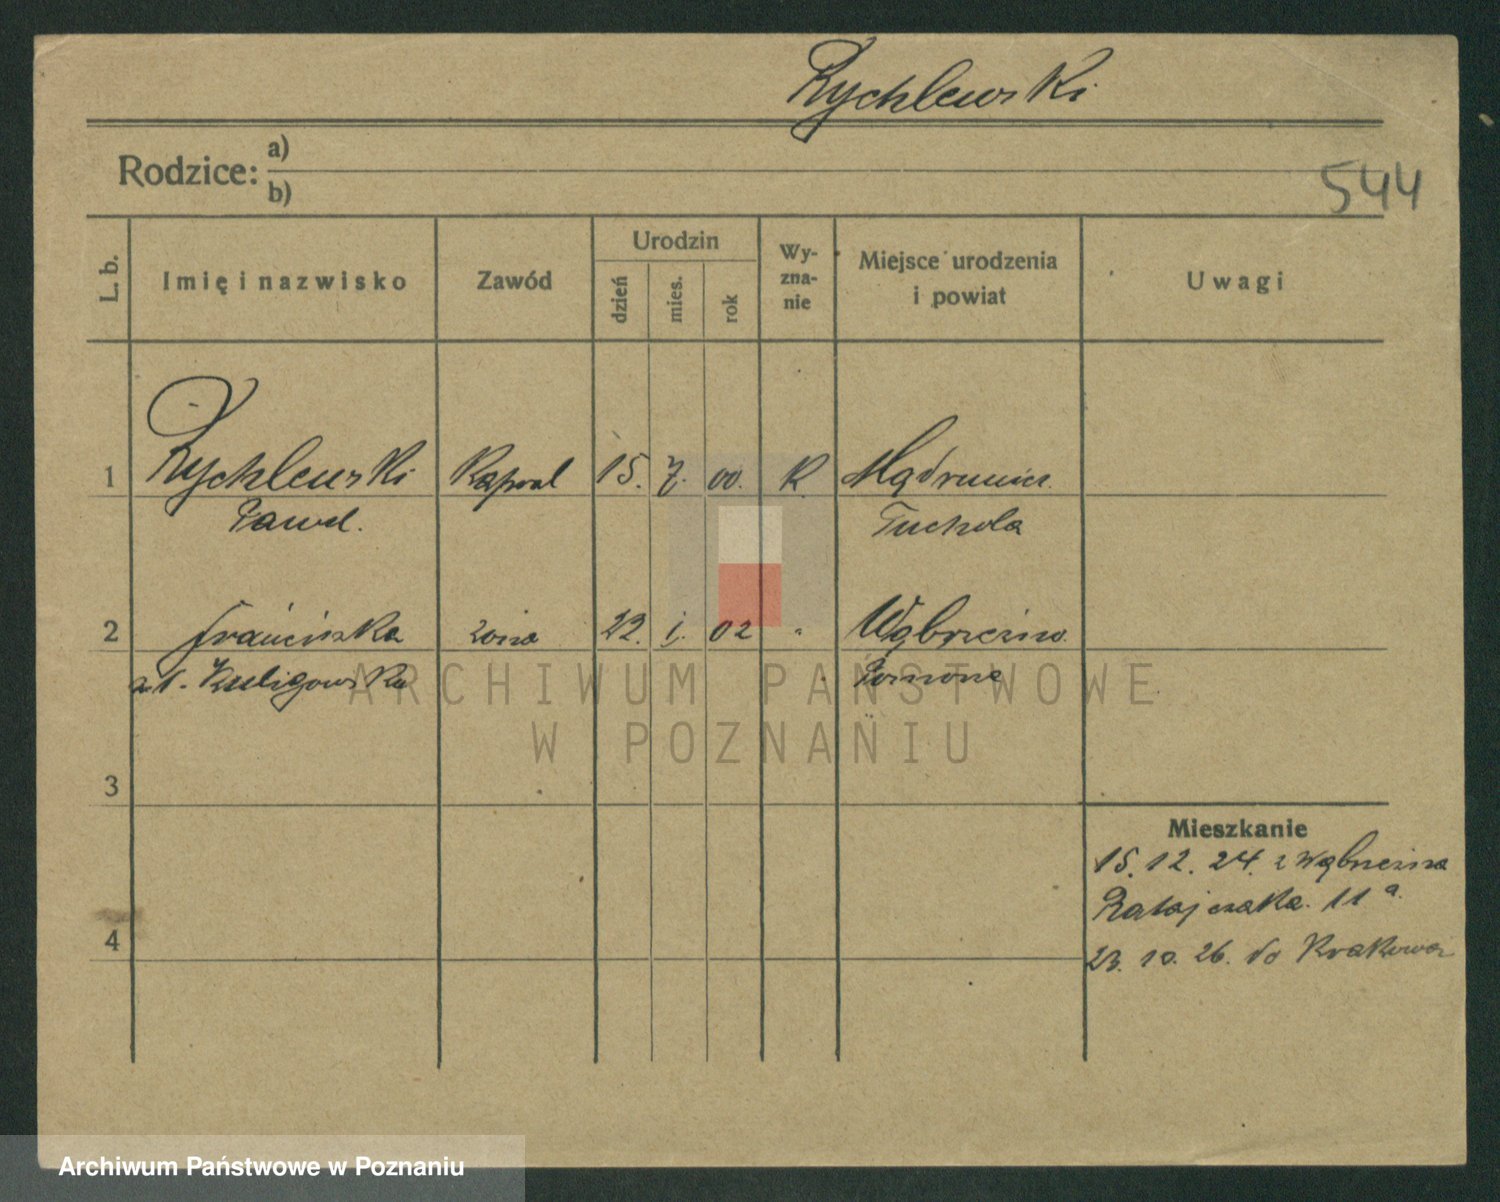 Rychlewski
Rodzice: a)
b)
544
L. b.
Imię i nazwisko
Zawód
Urodzin
dzień
mies.
rok
Wy-
zna-
nie
Miejsce urodzenia
i powiat
Uwagi
1 Rychlewski Kapral 15. 7. 00. K
Paweł. Tuchola
2 Franciszka żona 22. 1. 02 " Wąbrzeźno
Kuligowska
ARCHIWUM PAŃSTWOWE
W POZNANIU
3
Mieszkanie
15. 12. 24. z Wąbrzeźna
Ratajczaka. 11 a.
4
23. 10. 26. do Krakowa
Archiwum Państwowe w Poznaniu